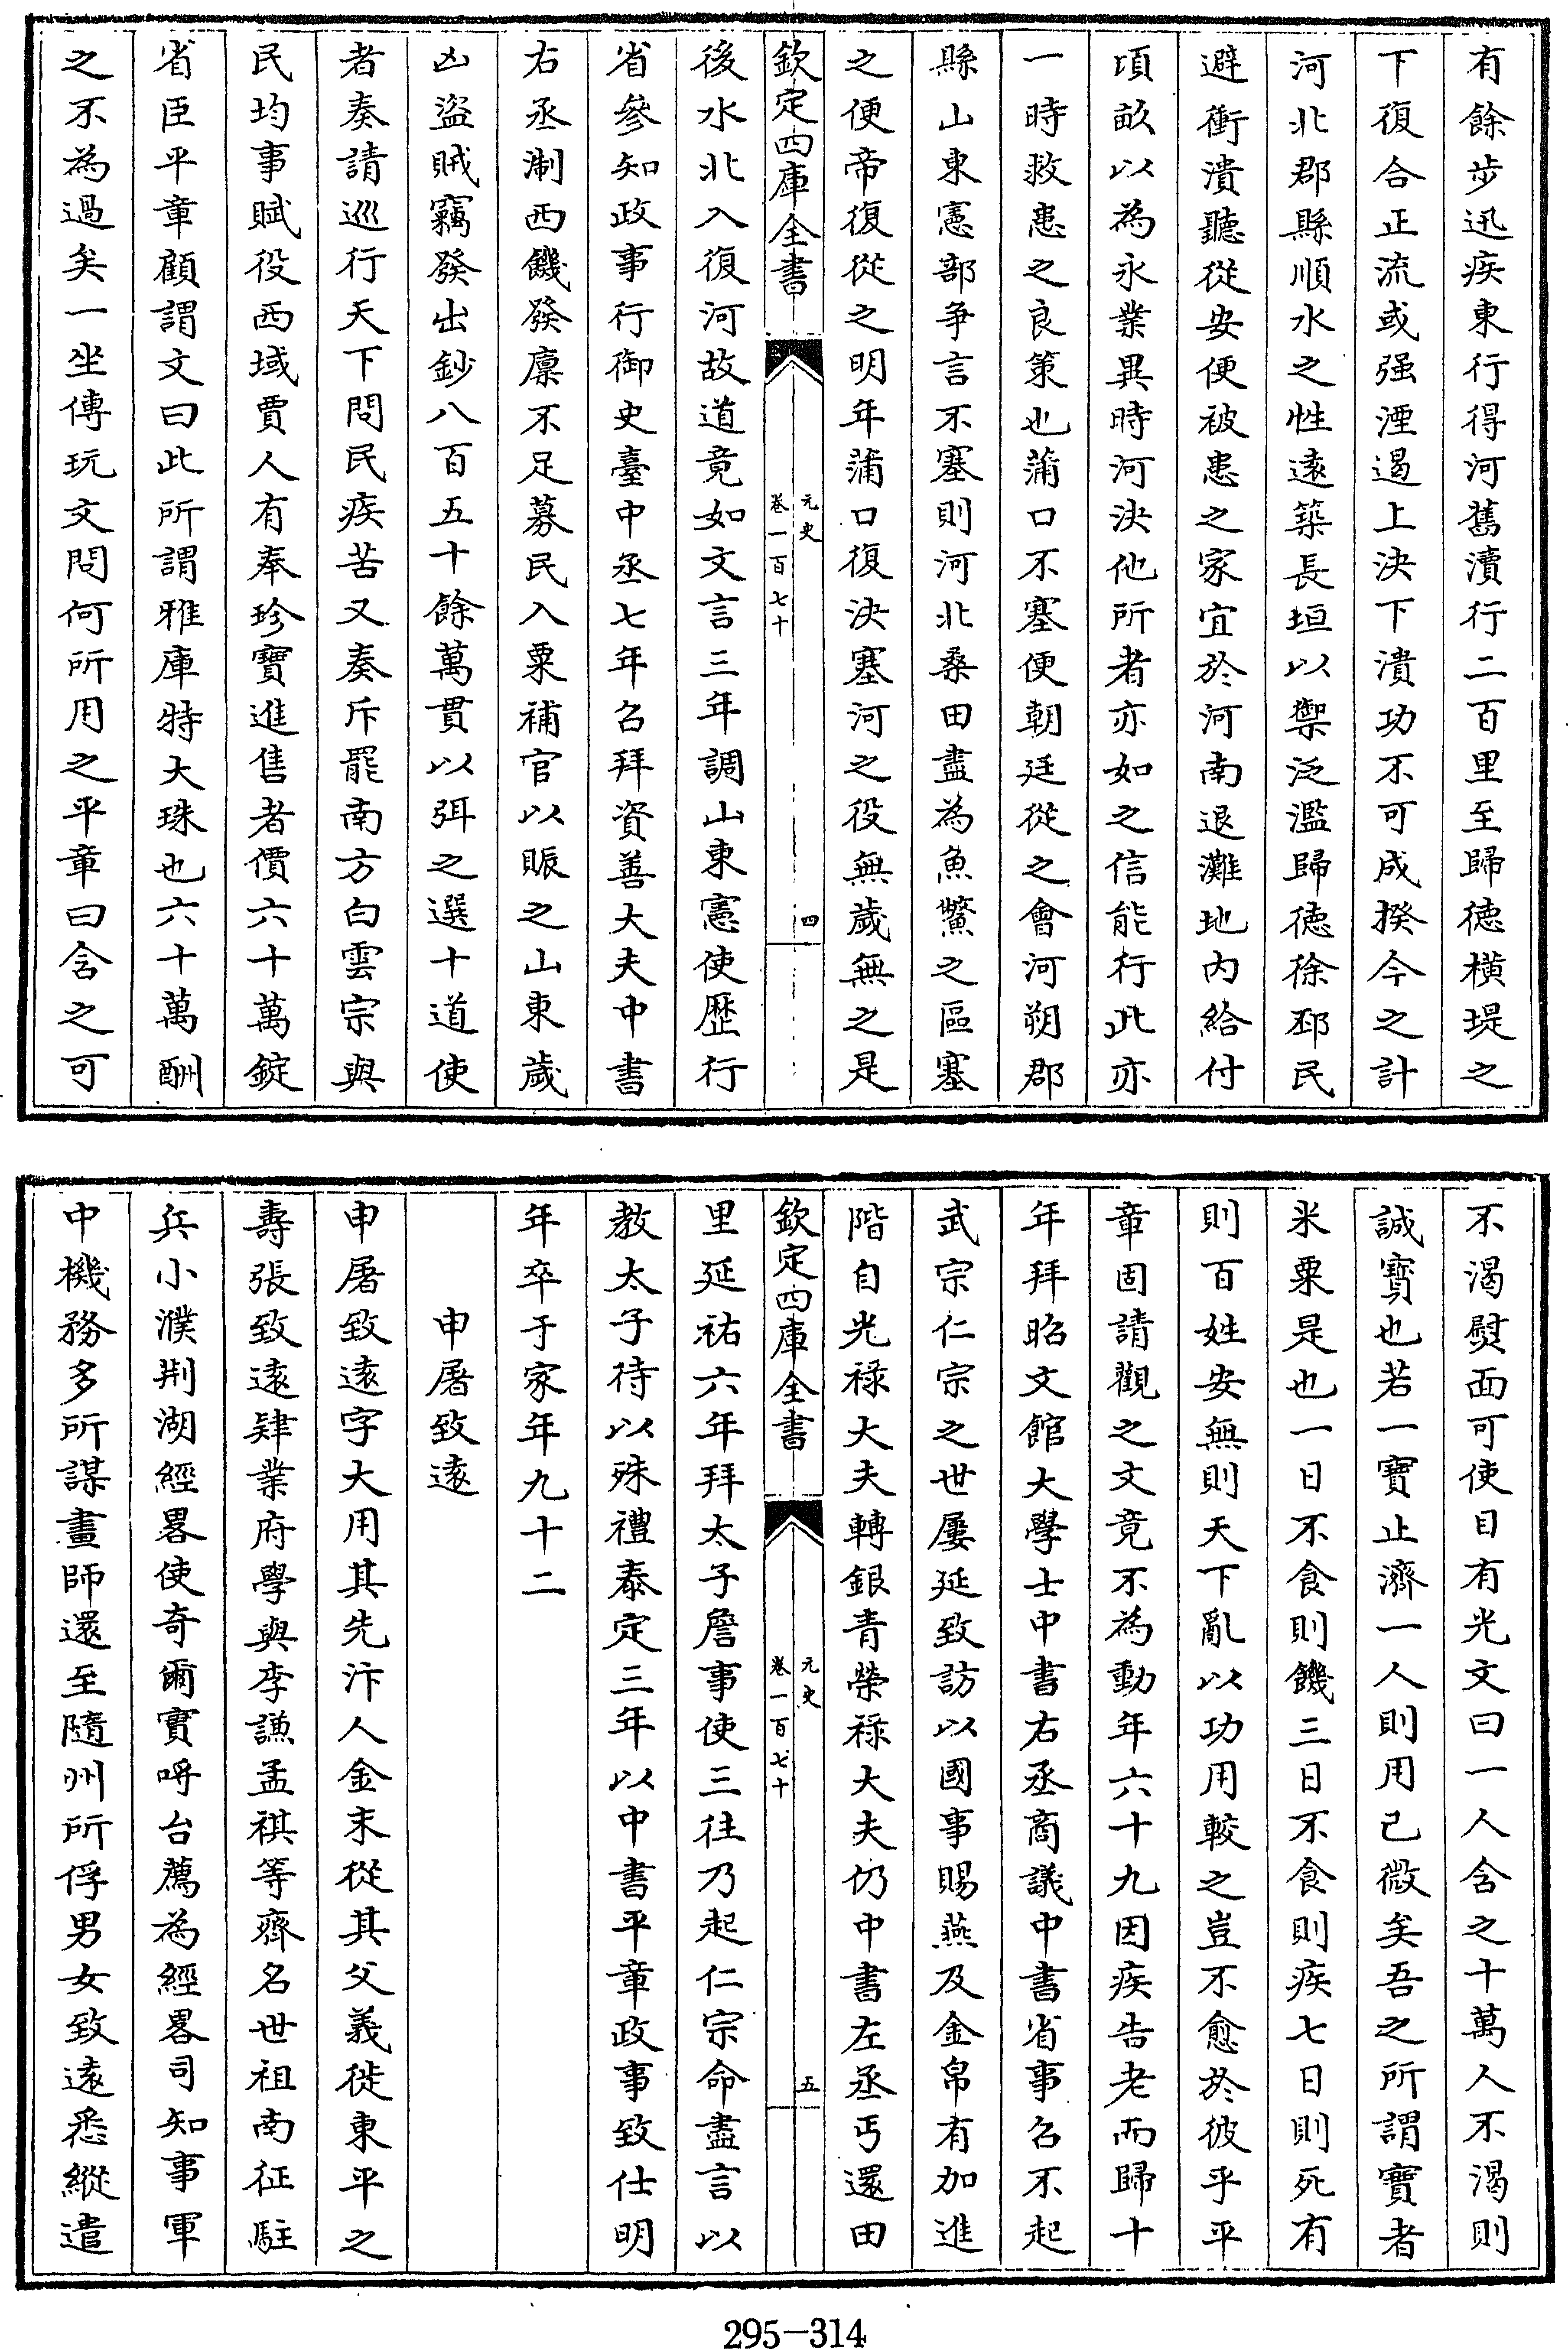 有餘步迅疾東行得河舊瀆行二百里至歸徳橫堤之
下復合正流或强湮遏上決下潰功不可成揆今之計
河北郡縣順水之性遠築長垣以禦泛濫歸徳徐邳民
避衝潰聽從安便被患之家宜於河南退灘地内給付
頃畝以為永業異時河決他所者亦如之信能行此亦
一時救患之良策也蒲口不塞便朝廷從之會河朔郡
縣山東憲部争言不塞則河北桑田盡為魚鱉之區塞
之便帝復從之明年蒲口復決塞河之役無歲無之是
欽定四庫全書
元史
卷一百七十
四
後水北入復河故道竟如文言三年調山東憲使歷行
省參知政事行御史臺中丞七年召拜資善大夫中書
右丞淛西饑發廪不足募民入粟補官以賑之山東歲
凶盜賊竊發出鈔八百五十餘萬貫以弭之選十道使
者奏請巡行天下問民疾苦又奏斥罷南方白雲宗與
民均事賦役西域賈人有奉珍寶進售者價六十萬錠
省臣平章顧謂文曰此所謂雅庫特大珠也六十萬酬
之不為過矣一坐傳玩文問何所用之平章曰含之可
不渴熨面可使目有光文曰一人含之十萬人不渴則
誠寳也若一寶止濟一人則用己微矣吾之所謂寶者
米粟是也一日不食則饑三日不食則疾七日則死有
則百姓安無則天下亂以功用較之豈不愈於彼乎平
章固請觀之文竟不為動年六十九因疾告老而歸十
年拜昭文館大學士中書右丞商議中書省事召不起
武宗仁宗之世屢延致訪以國事賜燕及金帛有加進
階自光禄大夫轉銀青榮禄大夫仍中書左丞丐還田
欽定四庫全書
元史
卷一百七十
五
里延祐六年拜太子詹事使三往乃起仁宗命盡言以
教太子待以殊禮泰定三年以中書平章政事致仕明
年卒于家年九十二
申屠致遠
申屠致遠字大用其先汴人金末從其父義徙東平之
壽張致遠肄業府學與李謙孟祺等齊名世祖南征駐
兵小濮荆湖經畧使奇爾實呼台薦為經畧司知事軍
中機務多所謀畫師還至隨州所俘男女致遠悉縱遣
295-314